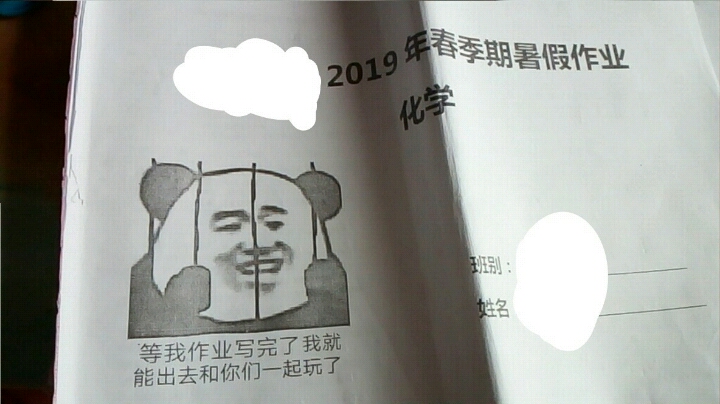 2019年春季期暑假作业
化学
班别：
姓名
等我作业写完了我就
能出去和你们一起玩了